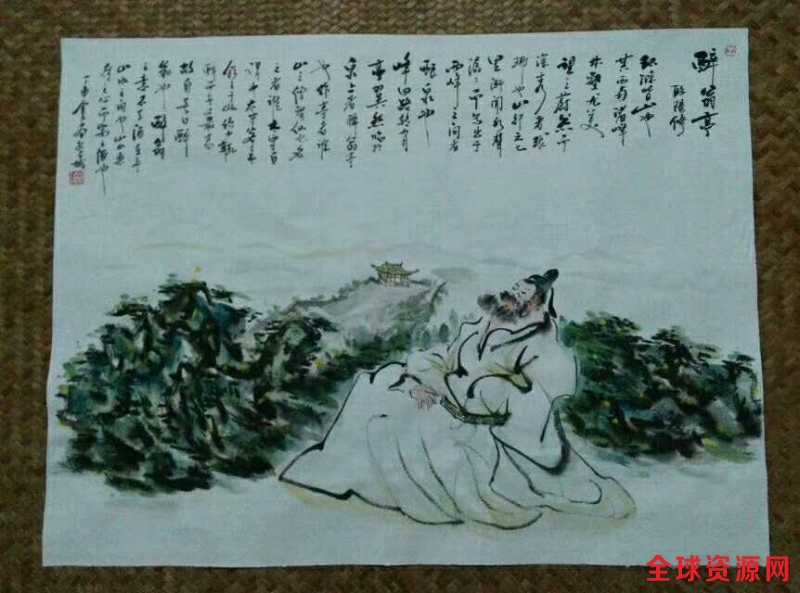 醉翁亭
欧阳修
环滁皆山也
其西南诸峰
林壑尤美
望之蔚然而
深秀者琅
琊也山行六七
里渐闻水声
潺潺而泻出于
两峰之间者
酿泉也
峰回路转有
亭翼然临于
泉上者醉翁亭
也作亭者谁
山之僧智仙也名
之者谁太守自
谓也太守与客来
饮于此饮少辄
醉而年又最高
故自号曰醉
翁也醉翁
之意不在酒在乎
山水之间也山水之乐
得之心而寓之酒也
全球资源网